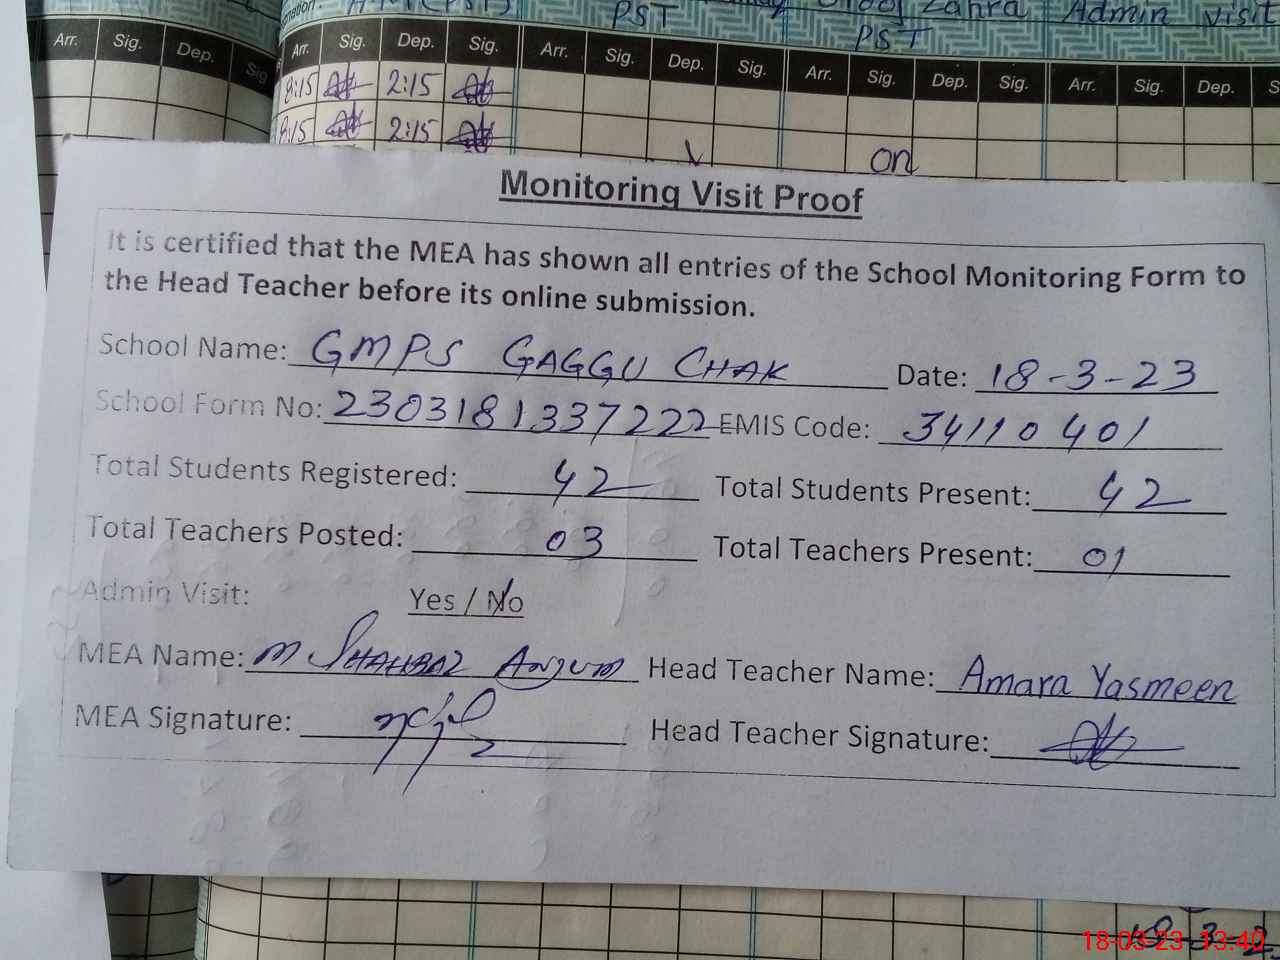 PST Zahra Admin visit
PST
Arr. Sig. Dep. Sig Arr. Sig. Dep. Sig. Arr. Sig. Dep. Sig. Arr. Sig. Dep. Sig. Arr. Sig. Dep. S
8:15 2:15
8:15 2:15
on
Monitoring Visit Proof
It is certified that the MEA has shown all entries of the School Monitoring Form to
the Head Teacher before its online submission.
School Name: GMPS GAGGU CHAK Date: 18-3-23
School Form No: 2303181337222 EMIS Code: 34110401
Total Students Registered: 42 Total Students Present: 42
Total Teachers Posted: 03 Total Teachers Present: 01
Admin Visit: Yes / No
MEA Name: M SHAHBAZ ANJUM Head Teacher Name: Amara Yasmeen
MEA Signature: Head Teacher Signature:
18-03-23 13:40